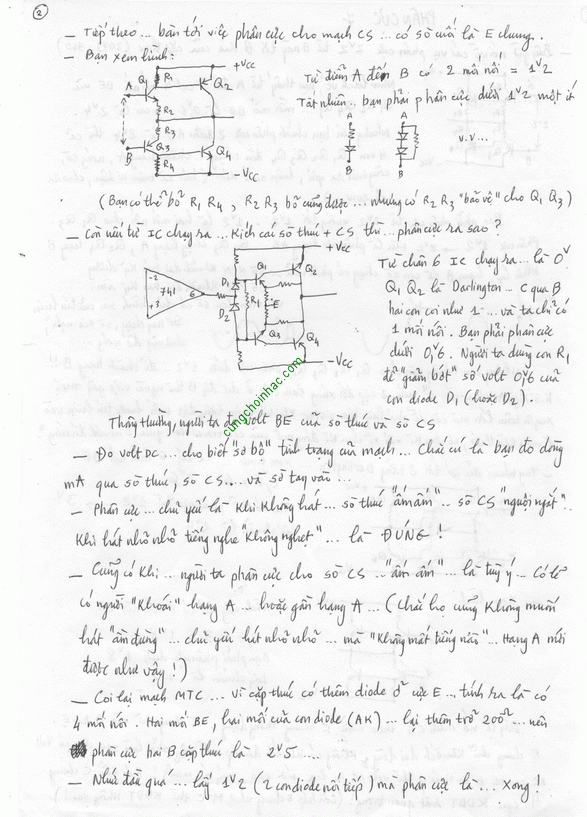 2
– Tiếp theo... bàn tới việc phân cực cho mạch CS... có sò cuối là E chung.
– Bạn xem hình:
+Vcc
Q1 R1 Q2
A
R2
R3
B Q3
R4 Q4
-Vcc
Từ điểm A đến B có 2 mối nối = 1V2
Tất nhiên.. bạn phải phân cực dưới 1V2 một ít
A A
v.v...
B B
(Bạn có thể bỏ R1 R4, R2 R3 bỏ cũng được... nhưng có R2 R3 "bảo vệ" cho Q1 Q3)
– Còn nếu từ IC chạy ra... kích cái sò thúc + CS thì... phân cực ra sao?
+Vcc
-2
741 6
+3
D1 Q1 Q2
D2 R1 E
Q3 Q4
-Vcc
Từ chân 6 IC chạy ra... là 0V
Q1 Q2 là Darlington.. C qua B
hai con coi như 1... và ta chỉ có
1 mối nối. Bạn phải phân cực
dưới 0V6. Người ta dùng con R1
để "giảm bớt" số volt 0V6 của
con diode D1 (hoặc D2).
congchoinhac.com
Thông thường, người ta đo volt BE của sò thúc và sò CS
– Đo volt DC... cho biết "sơ bộ" tình trạng của mạch... chắc cú là bạn đo dòng
mA qua sò thúc, sò CS.... và sờ tay vào...
– Phân cực... chủ yếu là khi không hát... sò thúc "âm ấm".. sò CS "nguội ngắt".
Khi hát nhỏ nhỏ tiếng nghe "không nghẹt"... là ĐÚNG!
– Cũng có khi.. người ta phân cực cho sò CS.. "âm ấm"... là tùy ý... Có lẽ
có người "khoái" hạng A... hoặc gần hạng A... (chắc họ cũng không muốn
hát "ầm đùng"... chủ yếu hát nhỏ nhỏ... mà "không mất tiếng nào"... Hạng A mới
được như vậy!)
– Coi lại mạch MTC... vì cặp thúc có thêm diode ở cực E... tính ra là có
4 mối nối. Hai mối BE, hai mối của con diode (AK)... lại thêm trở 200Ω... nên
phân cực hai B cặp thúc là 2V5....
– Nhức đầu quá... lấy 1V2 (2 con diode nối tiếp) mà phân cực là... xong!